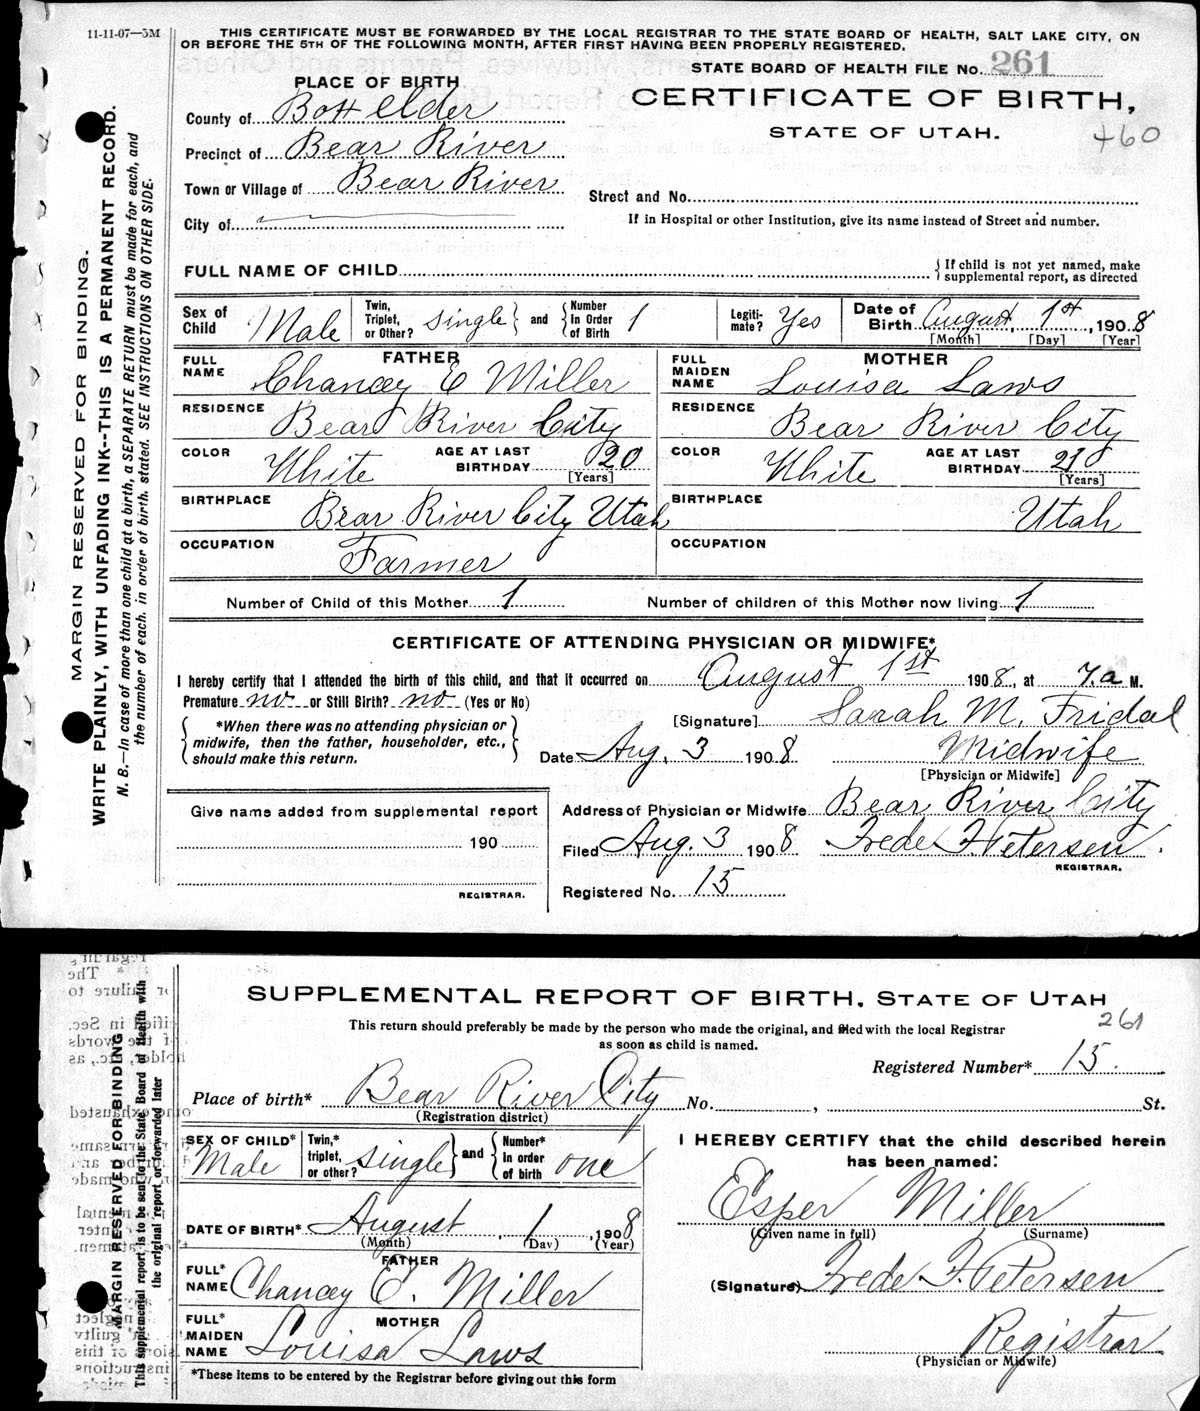 11-11-07—5M
THIS CERTIFICATE MUST BE FORWARDED BY THE LOCAL REGISTRAR TO THE STATE BOARD OF HEALTH, SALT LAKE CITY, ON
OR BEFORE THE 5TH OF THE FOLLOWING MONTH, AFTER FIRST HAVING BEEN PROPERLY REGISTERED.
STATE BOARD OF HEALTH FILE No. 261
PLACE OF BIRTH
CERTIFICATE OF BIRTH,
STATE OF UTAH.
460
County of Box elder
Precinct of Bear River
Town or Village of Bear River
Street and No.
City of
If in Hospital or other Institution, give its name instead of Street and number.
FULL NAME OF CHILD
If child is not yet named, make
supplemental report, as directed
Sex of Child Male Twin, Triplet, or Other? single and Number In Order of Birth 1 Legiti-mate? Yes Date of Birth August 1st, 1908
[Month] [Day] [Year]
FATHER MOTHER
FULL NAME Chancey E Miller FULL MAIDEN NAME Louisa Laws
RESIDENCE Bear River City RESIDENCE Bear River City
COLOR White AGE AT LAST BIRTHDAY 20 [Years] COLOR White AGE AT LAST BIRTHDAY 21 [Years]
BIRTHPLACE Bear River City Utah BIRTHPLACE Utah
OCCUPATION Farmer OCCUPATION
Number of Child of this Mother 1 Number of children of this Mother now living 1
CERTIFICATE OF ATTENDING PHYSICIAN OR MIDWIFE*
I hereby certify that I attended the birth of this child, and that it occurred on August 1st 1908, at 7.a M.
Premature no or Still Birth? no (Yes or No)
*When there was no attending physician or
midwife, then the father, householder, etc.,
should make this return.
[Signature] Sarah M. Fridal
Date Aug. 3 1908 Midwife
[Physician or Midwife]
Give name added from supplemental report
190
REGISTRAR.
Address of Physician or Midwife Bear River City
Filed Aug. 3 1908 Frede F. Petersen.
REGISTRAR.
Registered No. 15
MARGIN RESERVED FOR BINDING.
WRITE PLAINLY, WITH UNFADING INK--THIS IS A PERMANENT RECORD.
N. B.—In case of more than one child at a birth, a SEPARATE RETURN must be made for each, and
the number of each, in order of birth, stated. SEE INSTRUCTIONS ON OTHER SIDE.
SUPPLEMENTAL REPORT OF BIRTH, STATE OF UTAH
This return should preferably be made by the person who made the original, and filed with the local Registrar
as soon as child is named.
261
Registered Number* 15.
Place of birth* Bear River City No. , St.
(Registration district)
SEX OF CHILD* Male Twin,* triplet, or other? single and Number* In order of birth one
I HEREBY CERTIFY that the child described herein
has been named:
Esper Miller
(Given name in full) (Surname)
DATE OF BIRTH* August 1, 1908
(Month) (Day) (Year)
FATHER
FULL* NAME Chancey E. Miller
(Signature) Frede F. Petersen
MOTHER
FULL* MAIDEN NAME Louisa Laws
Registrar
(Physician or Midwife)
*These Items to be entered by the Registrar before giving out this form
MARGIN RESERVED FOR BINDING
This supplemental report is to be sent to the State Board of Health with
the original report, or forwarded later